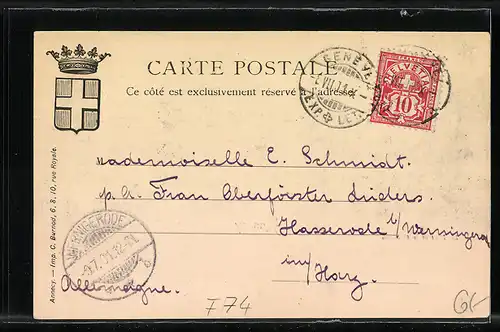 CARTE POSTALE
Ce côté est exclusivement réservé à l'adresse
GENÈVE
VII.01
EXP. LETT.
FRANCO
HELVETIA
10
Mademoiselle E. Schmidt.
p. a. Frau Oberförster Lüders
Hasserode b/Wernigerode
im/Harz
Allemagne.
WERNIGERODE
-9.7.01.
Annecy. — Imp. C. Burnod, 6, 8, 10, rue Royale.
I 74
6/-